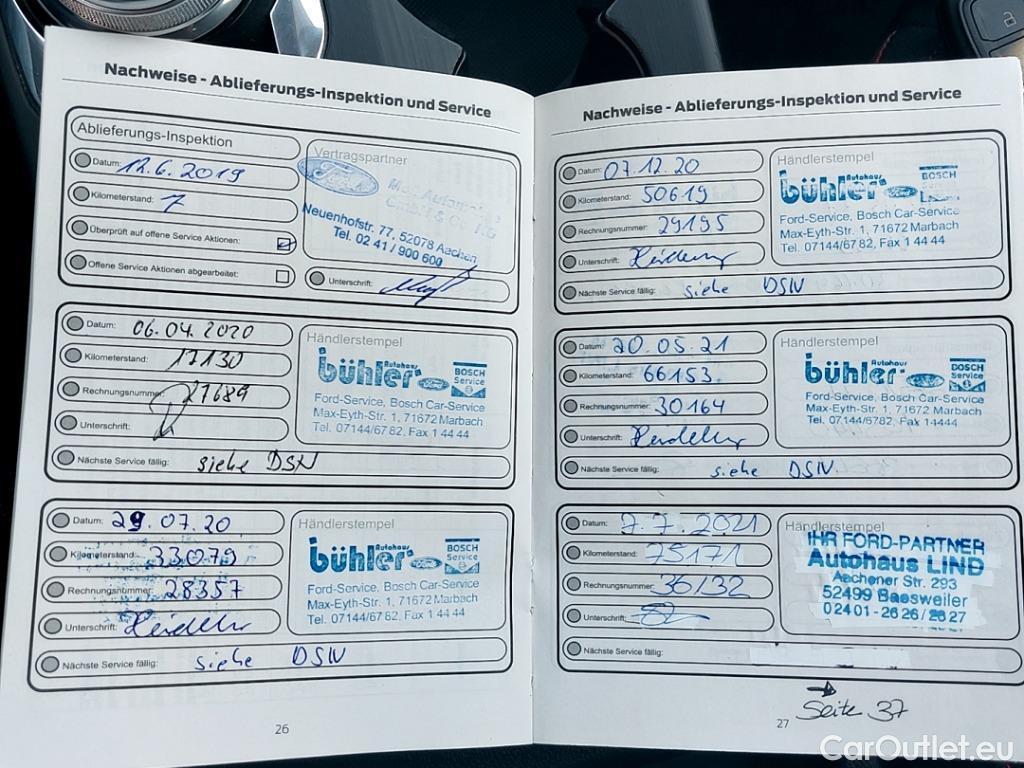 Nachweise - Ablieferungs-Inspektion und Service
Ablieferungs-Inspektion
Datum: 12.6.2019
Kilometerstand: 7
Überprüft auf offene Service Aktionen:
Offene Service Aktionen abgearbeitet:
Vertragspartner
Ford
Neuenhofstr. 77, 52078 Aachen
Tel. 02 41 / 900 600
Unterschrift:
Datum: 06.04.2020
Kilometerstand: 17130
Rechnungsnummer: 27689
Unterschrift:
Nächste Service fällig: siehe DSN
Händlerstempel
Autohaus
bühler Ford
BOSCH
Service
Ford-Service, Bosch Car-Service
Max-Eyth-Str. 1, 71672 Marbach
Tel. 07144/67 82, Fax 1 44 44
Datum: 29.07.20
Kilometerstand: 33079
Rechnungsnummer: 28357
Unterschrift:
Nächste Service fällig: siehe DSN
Händlerstempel
Autohaus
bühler Ford
BOSCH
Service
Ford-Service, Bosch Car-Service
Max-Eyth-Str. 1, 71672 Marbach
Tel. 07144/67 82, Fax 1 44 44
26
Nachweise - Ablieferungs-Inspektion und Service
Datum: 07.12.20
Kilometerstand: 50619
Rechnungsnummer: 29195
Unterschrift:
Nächste Service fällig: siehe DSN
Händlerstempel
Autohaus
bühler Ford
BOSCH
Ford-Service, Bosch Car-Service
Max-Eyth-Str. 1, 71672 Marbach
Tel. 07144/67 82, Fax 1 44 44
Datum: 20.05.21
Kilometerstand: 66153.
Rechnungsnummer: 30164
Unterschrift:
Nächste Service fällig: siehe DSN.
Händlerstempel
Autohaus
bühler Ford
BOSCH
Service
Ford-Service, Bosch Car-Service
Max-Eyth-Str. 1, 71672 Marbach
Tel. 07144/67 82, Fax 1 4444
Datum: 7.7.2021
Kilometerstand: 75171
Rechnungsnummer: 36/32
Unterschrift:
Nächste Service fällig:
Händlerstempel
IHR FORD-PARTNER
Autohaus LIND
Aachener Str. 293
52499 Baesweiler
0 24 01 - 26 26 / 26 27
→ Seite 37
27
CarOutlet.eu